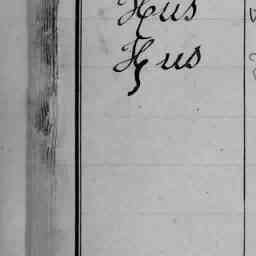 Hus
Hus